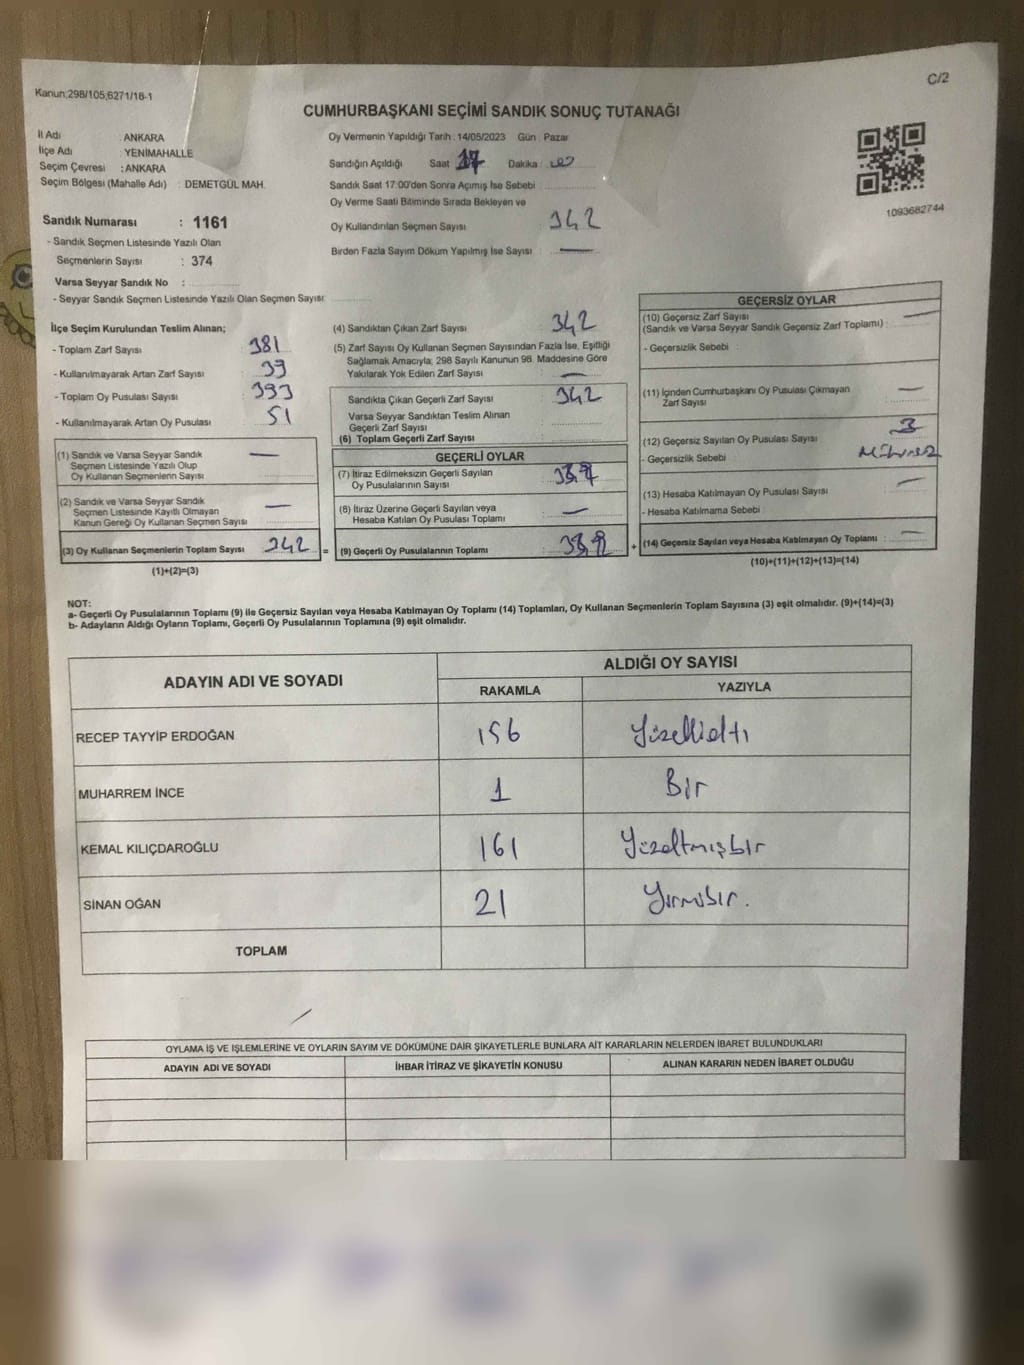 C/2
Kanun:298/105,6271/18-1
CUMHURBAŞKANI SEÇİMİ SANDIK SONUÇ TUTANAĞI
İl Adı : ANKARA
İlçe Adı : YENİMAHALLE
Seçim Çevresi : ANKARA
Seçim Bölgesi (Mahalle Adı) : DEMETGÜL MAH.
Oy Vermenin Yapıldığı Tarih : 14/05/2023 Gün : Pazar
Sandığın Açıldığı Saat 17 Dakika : 00
Sandık Saat 17:00'den Sonra Açımış İse Sebebi
Oy Verme Saati Bitiminde Sırada Bekleyen ve
Oy Kullandırılan Seçmen Sayısı : 342
Birden Fazla Sayım Döküm Yapılmış İse Sayısı : —
1093682744
Sandık Numarası : 1161
- Sandık Seçmen Listesinde Yazılı Olan
Seçmenlerin Sayısı : 374
Varsa Seyyar Sandık No :
- Seyyar Sandık Seçmen Listesinde Yazılı Olan Seçmen Sayısı:
İlçe Seçim Kurulundan Teslim Alınan;
- Toplam Zarf Sayısı : 381
- Kullanılmayarak Artan Zarf Sayısı : 39
- Toplam Oy Pusulası Sayısı : 393
- Kullanılmayarak Artan Oy Pusulası : 51
(1) Sandık ve Varsa Seyyar Sandık
Seçmen Listesinde Yazılı Olup
Oy Kullanan Seçmenlerin Sayısı : —
(2) Sandık ve Varsa Seyyar Sandık
Seçmen Listesinde Kayıtlı Olmayan
Kanun Gereği Oy Kullanan Seçmen Sayısı : —
(3) Oy Kullanan Seçmenlerin Toplam Sayısı : 342 =
(1)+(2)=(3)
(4) Sandıktan Çıkan Zarf Sayısı : 342
(5) Zarf Sayısı Oy Kullanan Seçmen Sayısından Fazla İse, Eşitliği
Sağlamak Amacıyla; 298 Sayılı Kanunun 98. Maddesine Göre
Yakılarak Yok Edilen Zarf Sayısı : —
Sandıkta Çıkan Geçerli Zarf Sayısı : 342
Varsa Seyyar Sandıktan Teslim Alınan
Geçerli Zarf Sayısı :
(6) Toplam Geçerli Zarf Sayısı :
GEÇERLİ OYLAR
(7) İtiraz Edilmeksizin Geçerli Sayılan
Oy Pusulalarının Sayısı :
(8) İtiraz Üzerine Geçerli Sayılan veya
Hesaba Katılan Oy Pusulası Toplamı : —
(9) Geçerli Oy Pusulalarının Toplamı : +
GEÇERSİZ OYLAR
(10) Geçersiz Zarf Sayısı
(Sandık ve Varsa Seyyar Sandık Geçersiz Zarf Toplamı) : —
- Geçersizlik Sebebi :
(11) İçinden Cumhurbaşkanı Oy Pusulası Çıkmayan
Zarf Sayısı : —
(12) Geçersiz Sayılan Oy Pusulası Sayısı : 3
- Geçersizlik Sebebi : Mühürsüz
(13) Hesaba Katılmayan Oy Pusulası Sayısı : —
- Hesaba Katılmama Sebebi :
(14) Geçersiz Sayılan veya Hesaba Katılmayan Oy Toplamı : —
(10)+(11)+(12)+(13)=(14)
NOT:
a- Geçerli Oy Pusulalarının Toplamı (9) ile Geçersiz Sayılan veya Hesaba Katılmayan Oy Toplamı (14) Toplamları, Oy Kullanan Seçmenlerin Toplam Sayısına (3) eşit olmalıdır. (9)+(14)=(3)
b- Adayların Aldığı Oyların Toplamı, Geçerli Oy Pusulalarının Toplamına (9) eşit olmalıdır.
ADAYIN ADI VE SOYADI ALDIĞI OY SAYISI
RAKAMLA YAZIYLA
RECEP TAYYİP ERDOĞAN 156 Yüzellialtı
MUHARREM İNCE 1 Bir
KEMAL KILIÇDAROĞLU 161 Yüzaltmışbir
SİNAN OĞAN 21 Yirmibir.
TOPLAM
OYLAMA İŞ VE İŞLEMLERİNE VE OYLARIN SAYIM VE DÖKÜMÜNE DAİR ŞİKAYETLERLE BUNLARA AİT KARARLARIN NELERDEN İBARET BULUNDUKLARI
ADAYIN ADI VE SOYADI İHBAR İTİRAZ VE ŞİKAYETİN KONUSU ALINAN KARARIN NEDEN İBARET OLDUĞU